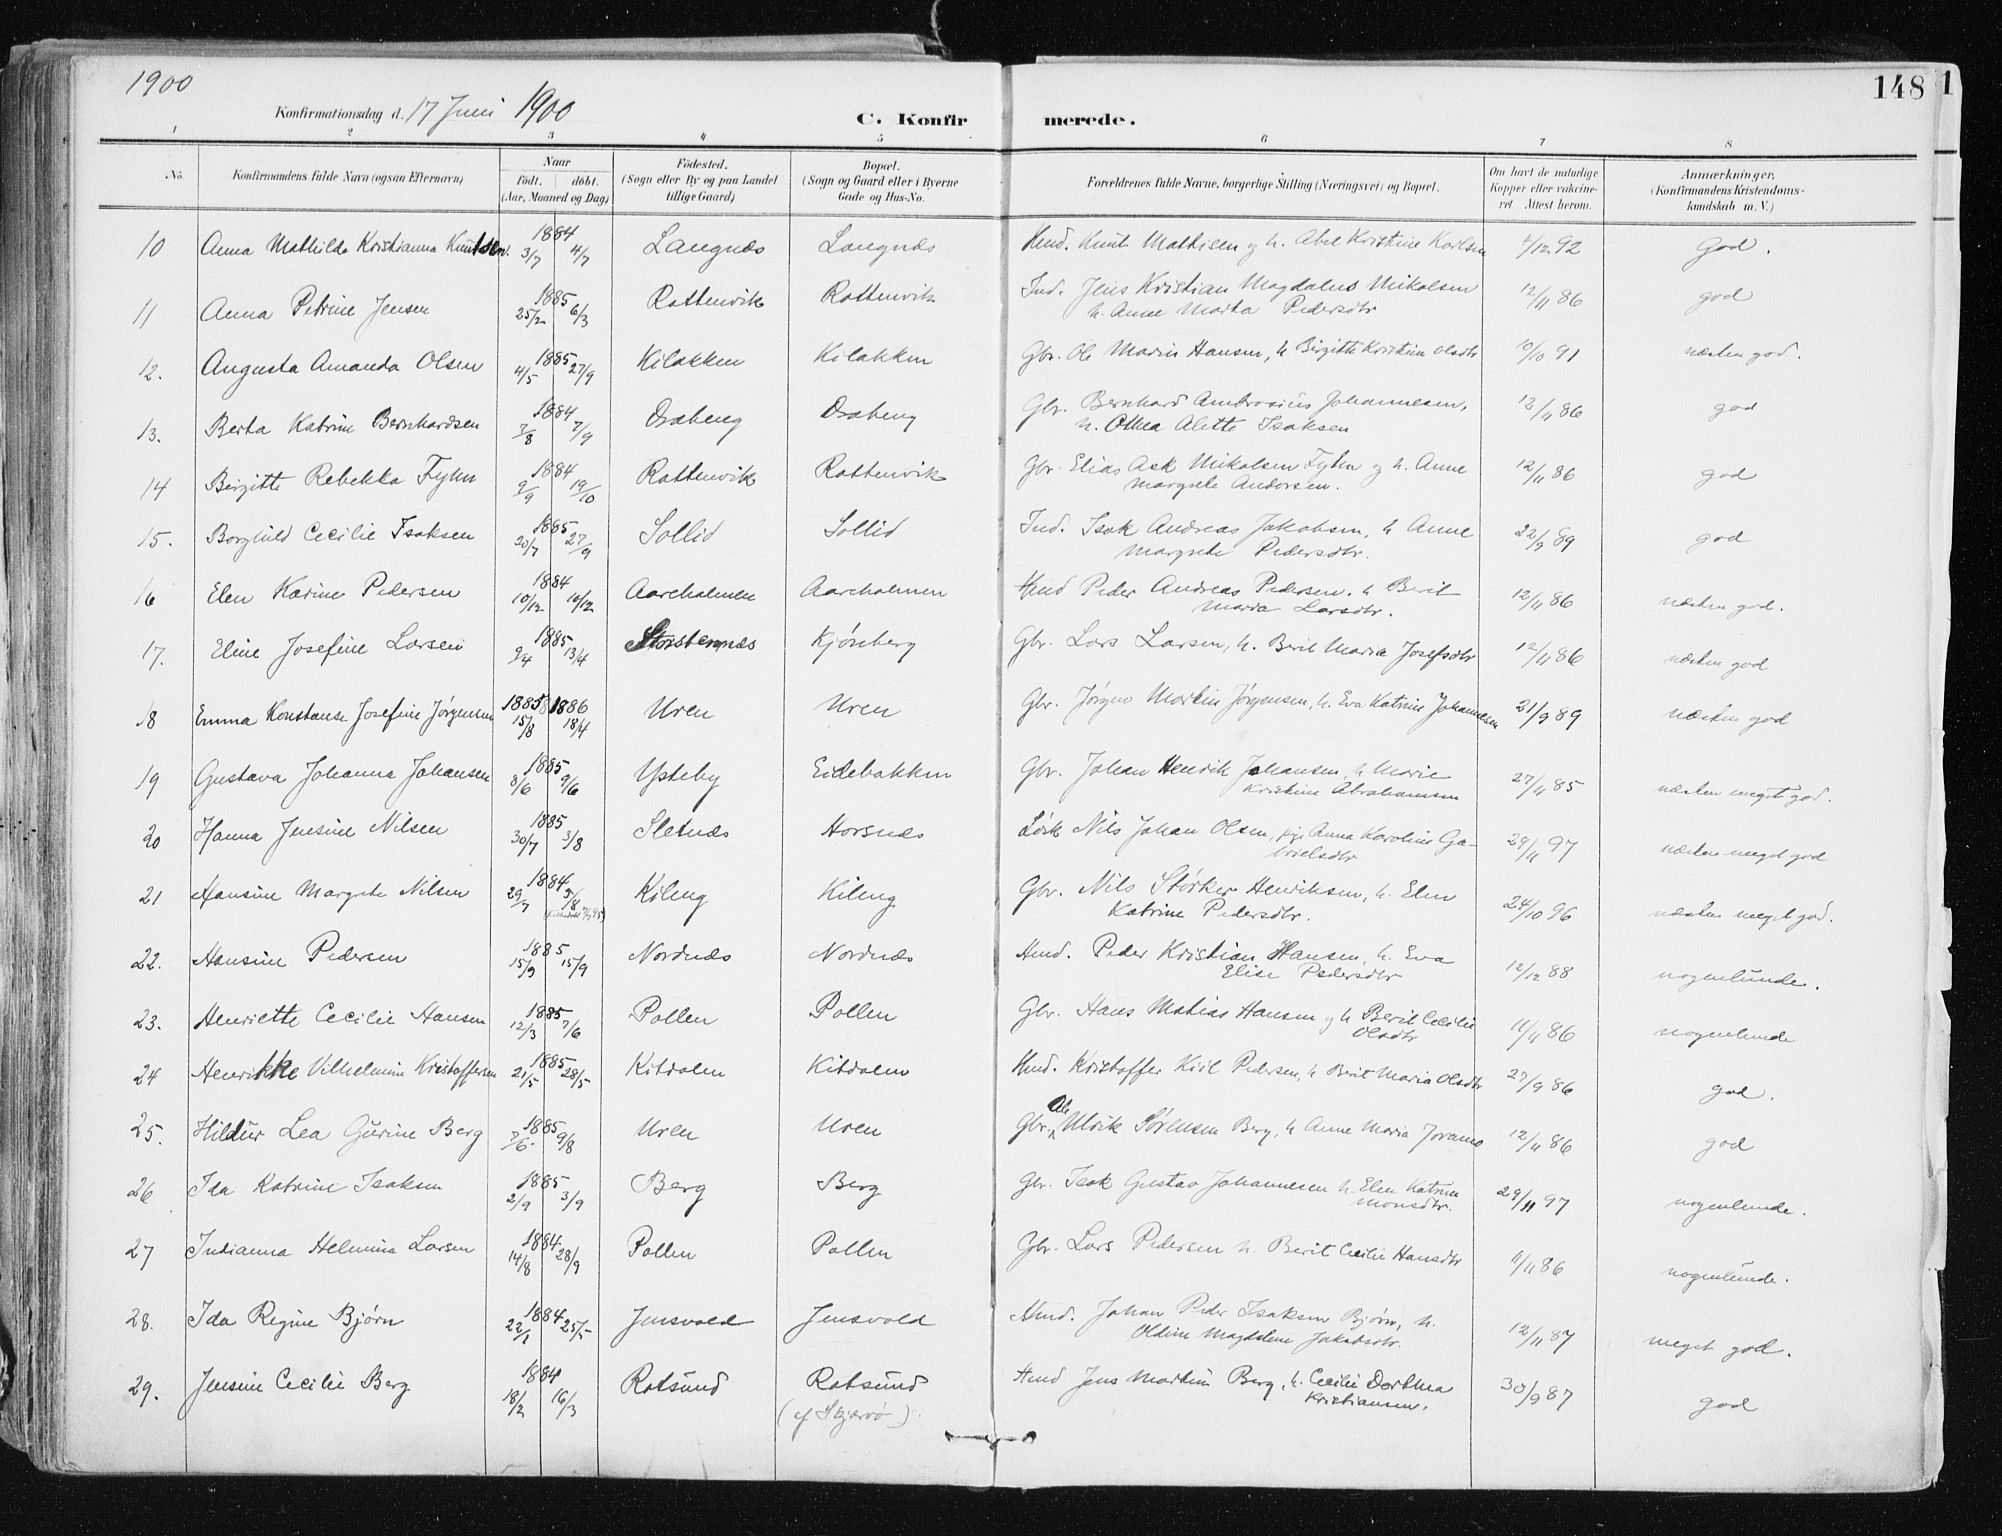 1900
148
Konfirmationsdag d. 17 Juni 1900
C. Konfirmerede.
1 2 3 4 5 6 7 8
No.
Konfirmandens fulde Navn (ogsaa Efternavn)
Naar
födt. döbt.
(Aar, Maaned og Dag)
Födested.
(Sogn eller By og paa Landet
tillige Gaard)
Bopæl.
(Sogn og Gaard eller i Byerne
Gade og Hus-No.
Forældrenes fulde Navne, borgerlige Stilling (Næringsvei) og Bopæl.
Om havt de naturlige
Kopper eller vakcine-
ret Attest herom.
Anmærkninger.
(Konfirmandens Kristendoms-
kundskab m. V.)
10 Anna Mathilde Kristianna Knutsen. 1884 3/7 4/7 Langnæs Langnæs Hmd. Knut Mathisen og h. Abel Kristine Karlsen /12 92 God.
11 Anna Petrine Jensen 1885 25/2 6/3 Rottenvik Rottenvik Ind. Jens Kristian Magdalus Nikolsen 12/11 86 god
h. Anne Marta Pedersdtr
12. Augusta Amanda Olsen 1885 4/5 27/9 Kilakken Kilakken Gbr. Ole Marius Hansen, h Birgitte Kristine Olsdtr 10/10 91 næsten god.
13. Berta Katrine Bernhardsen 1884 7/8 7/9 Draberg Draberg Gbr. Bernhard Ambrosius Johannesen, 12/11 86 god
h. Othea Alette Isaksen
14 Birgitte Rebekka Fyhn 1884 9/9 19/10 Rottenvik Rottenvik Gbr. Elias Ask Nikolsen Fyhn og h. Anne 12/11 86 god
Margrete Andersen.
15. Borghild Cecilie Isaksen 1885 20/7 27/9 Sollid Sollid Ind. Isak Andreas Jakobsen, h Anne 22/9 89 god
Margrete Pedersdtr.
16 Elen Karine Pedersen 1884 10/12 16/12 Aareholmen Aareholmen Hmd Peder Andreas Pedersen. h Berit 12/11 86 næsten god.
Maria Larsdtr.
17. Eline Josefine Larsen 1885 9/4 13/4 Storstennæs Kjösberg Gbr. Lars Larsen, h. Berit Maria Josefsdtr 12/11 86 næsten god
18 Emma Konstanse Josefine Jørgensen 1885 1886 15/8 18/4 Uren Uren Gbr. Jørgen Martin Jørgensen, h. Eva Katrine Johannesen 21/9 89 næsten god
19 Gustava Johanna Johansen 1885 8/6 9/6 Ysteby Eidebakken Gbr. Johan Henrik Johansen, h Marie 27/11 85 næsten meget god.
Kristine Abrahamsen
20 Hanna Jensine Nilsen 1885 30/7 3/8 Sletnæs Horsnæs Løsk Nils Johan Olsen, Anna Karoline Ga- 29/11 97 næsten meget god
brielsdtr
21 Hansine Margrete Nilsen 1884 29/7 5/8 Kileng Kileng Gbr. Nils Størker Henriksen, h. Elen 24/10 96 næsten meget god.
Katrine Pedersdtr.
22. Hansine Pedersen 1885 15/9 15/9 Nordnæs Nordnæs Hmd. Peder Kristian Hansen, h. Eva 12/12 88 nogenlunde.
Elise Pedersdtr
23. Henriette Cecilie Hansen 1885 12/3 7/6 Pollen Pollen Gbr. Hans Matias Hansen og h Berit Cecilie 11/11 86 nogenlunde
Olsdtr
24 Henrikke Vilhelmine Kristoffersen 1885 21/5 28/5 Kitdalen Kitdalen Hmd. Kristoffer Kiil Pedersen, h Berit Maria Olsdtr 27/9 86 god.
25. Hildur Lea Gurine Berg 1885 7/6 9/8 Uren Uren Gbr. Ole Ulrik Sørensen Berg, h Anne Maria Jorams 12/11 86 god
26 Ida Katrine Isaksen 1885 2/9 3/9 Berg Berg Gbr. Isak Gustav Johannesen h. Elen Katrine 29/11 97 nogenlunde.
Monsdtr.
27 Indianna Helmina Larsen 1884 14/8 28/9 Pollen Pollen Gbr. Lars Pedersen h. Berit Cecilie Hansdtr 11/11 86 nogenlunde.
28. Ida Regine Bjørn 1884 22/1 25/5 Jensvold Jensvold Hmd. Johan Peder Isaksen Bjørn, h. 12/11 87 meget god.
Oldine Magdalene Jakobsdtr.
29. Jensine Cecilie Berg 1884 18/2 16/3 Rotsund Rotsund Hmd Jens Martin Berg, h. Cecilie Dorthea 30/9 87 god
(cf Skjærvö) Kristiansen.